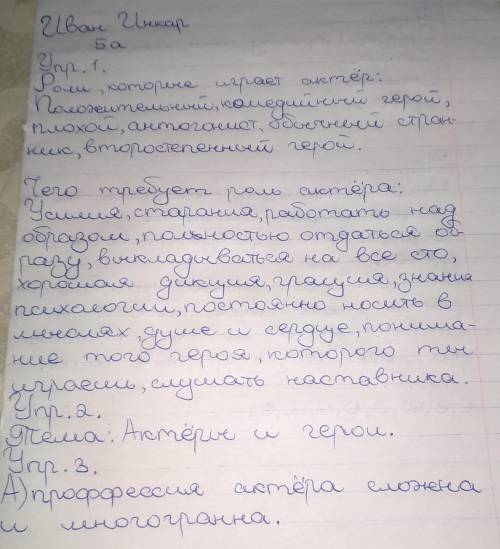 Иван Инкар
5а
Упр. 1.
Роли, которые играет актёр:
Положительный, комедийный герой,
плохой, антогонист, обычный стран-
ник, второстепенный герой.
Чего требует роль актёра:
Усилия, старания, работать над
образом, полностью отдаться об-
разу, выкладываться на все сто,
хорошая дикция, грация, знания
психологии, постоянно носить в
мыслях, душе и сердце, понима-
ние того героя, которого ты
играешь, слушать наставника.
Упр. 2.
Тема: Актёры и герои.
Упр. 3.
А) проффессия актёра сложена
и многогранна.